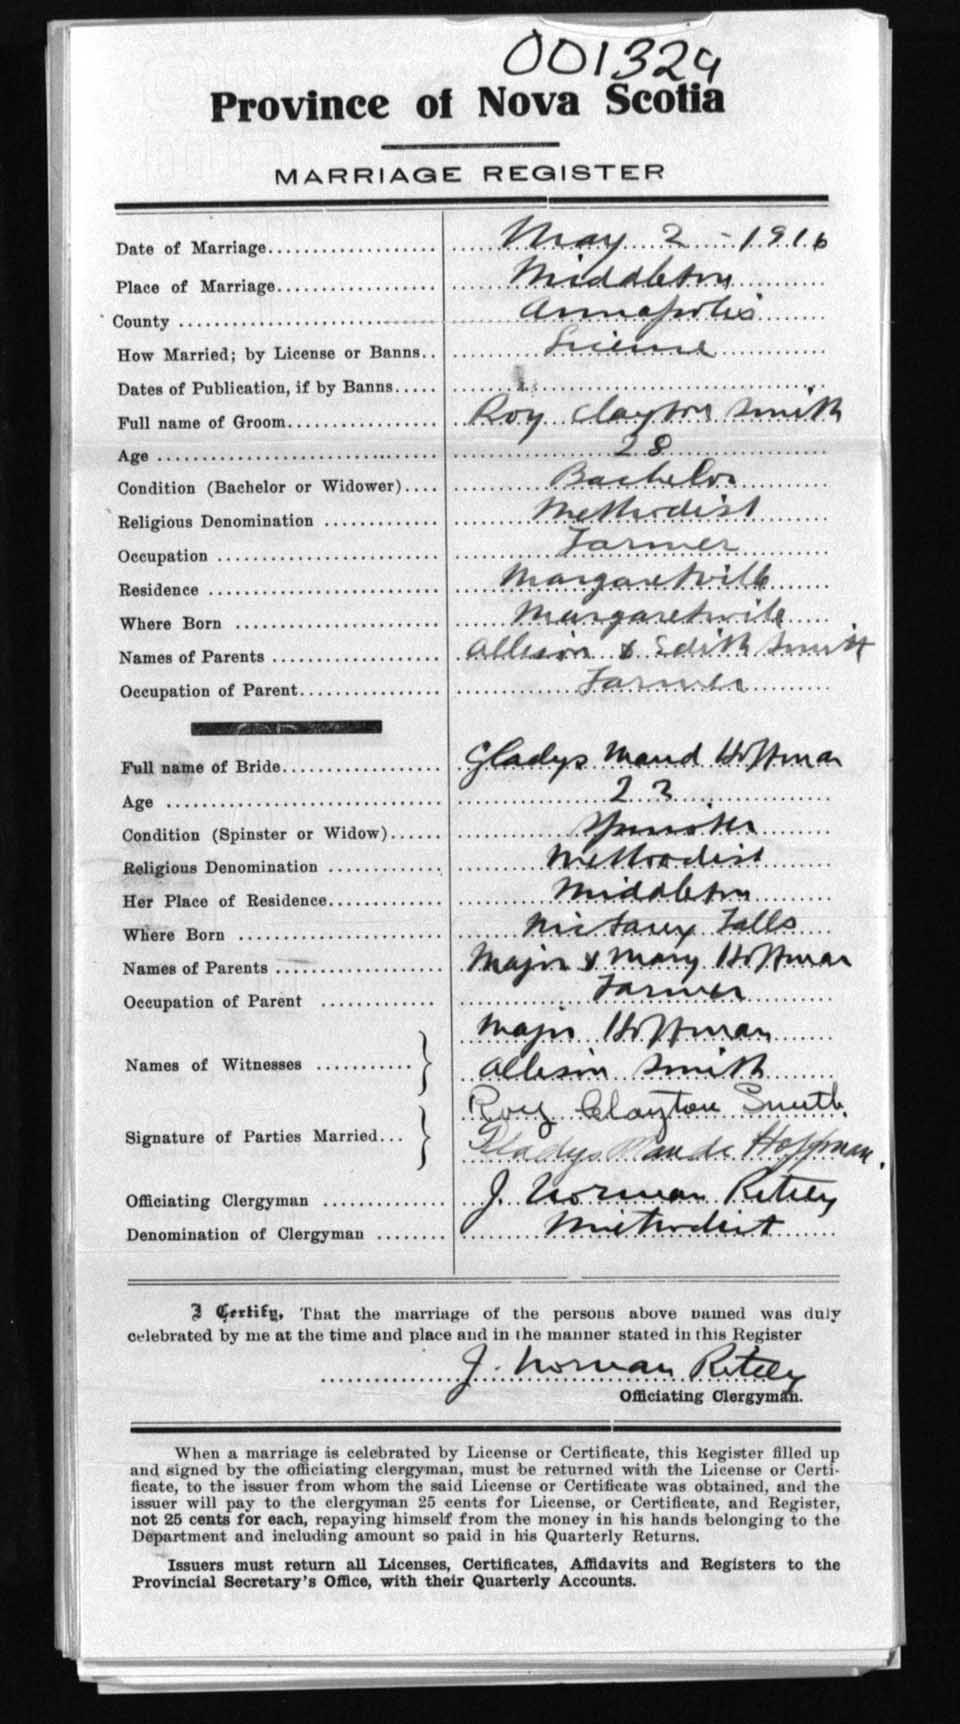 001329
Province of Nova Scotia
MARRIAGE REGISTER
Date of Marriage.................... May 2 - 1916
Place of Marriage................... Middleton
County ............................. Annapolis
How Married; by License or Banns.. License
Dates of Publication, if by Banns.....
Full name of Groom.................. Roy Clayton Smith
Age ................................ 28
Condition (Bachelor or Widower).... Bachelor
Religious Denomination ............. Methodist
Occupation ......................... Farmer
Residence .......................... Margaretville
Where Born ......................... Margaretville
Names of Parents ................... Allison & Edith Smith
Occupation of Parent................ Farmer
Full name of Bride.................. Gladys Maud Hoffman
Age ................................ 23
Condition (Spinster or Widow)...... Spinster
Religious Denomination ............. Methodist
Her Place of Residence............. Middleton
Where Born ......................... Nictaux Falls
Names of Parents ................... Major & Mary Hoffman
Occupation of Parent ............... Farmer
Names of Witnesses ............ } Major Hoffman
Allison Smith
Signature of Parties Married... } Roy Clayton Smith.
Gladys Maude Hoffman.
Officiating Clergyman .............. J. Norman
Denomination of Clergyman ........ Methodist
I Certify, That the marriage of the persons above named was duly
celebrated by me at the time and place and in the manner stated in this Register
J. Norman
Officiating Clergyman.
When a marriage is celebrated by License or Certificate, this Register filled up
and signed by the officiating clergyman, must be returned with the License or Certi-
ficate, to the issuer from whom the said License or Certificate was obtained, and the
issuer will pay to the clergyman 25 cents for License, or Certificate, and Register,
not 25 cents for each, repaying himself from the money in his hands belonging to the
Department and including amount so paid in his Quarterly Returns.
Issuers must return all Licenses, Certificates, Affidavits and Registers to the
Provincial Secretary's Office, with their Quarterly Accounts.